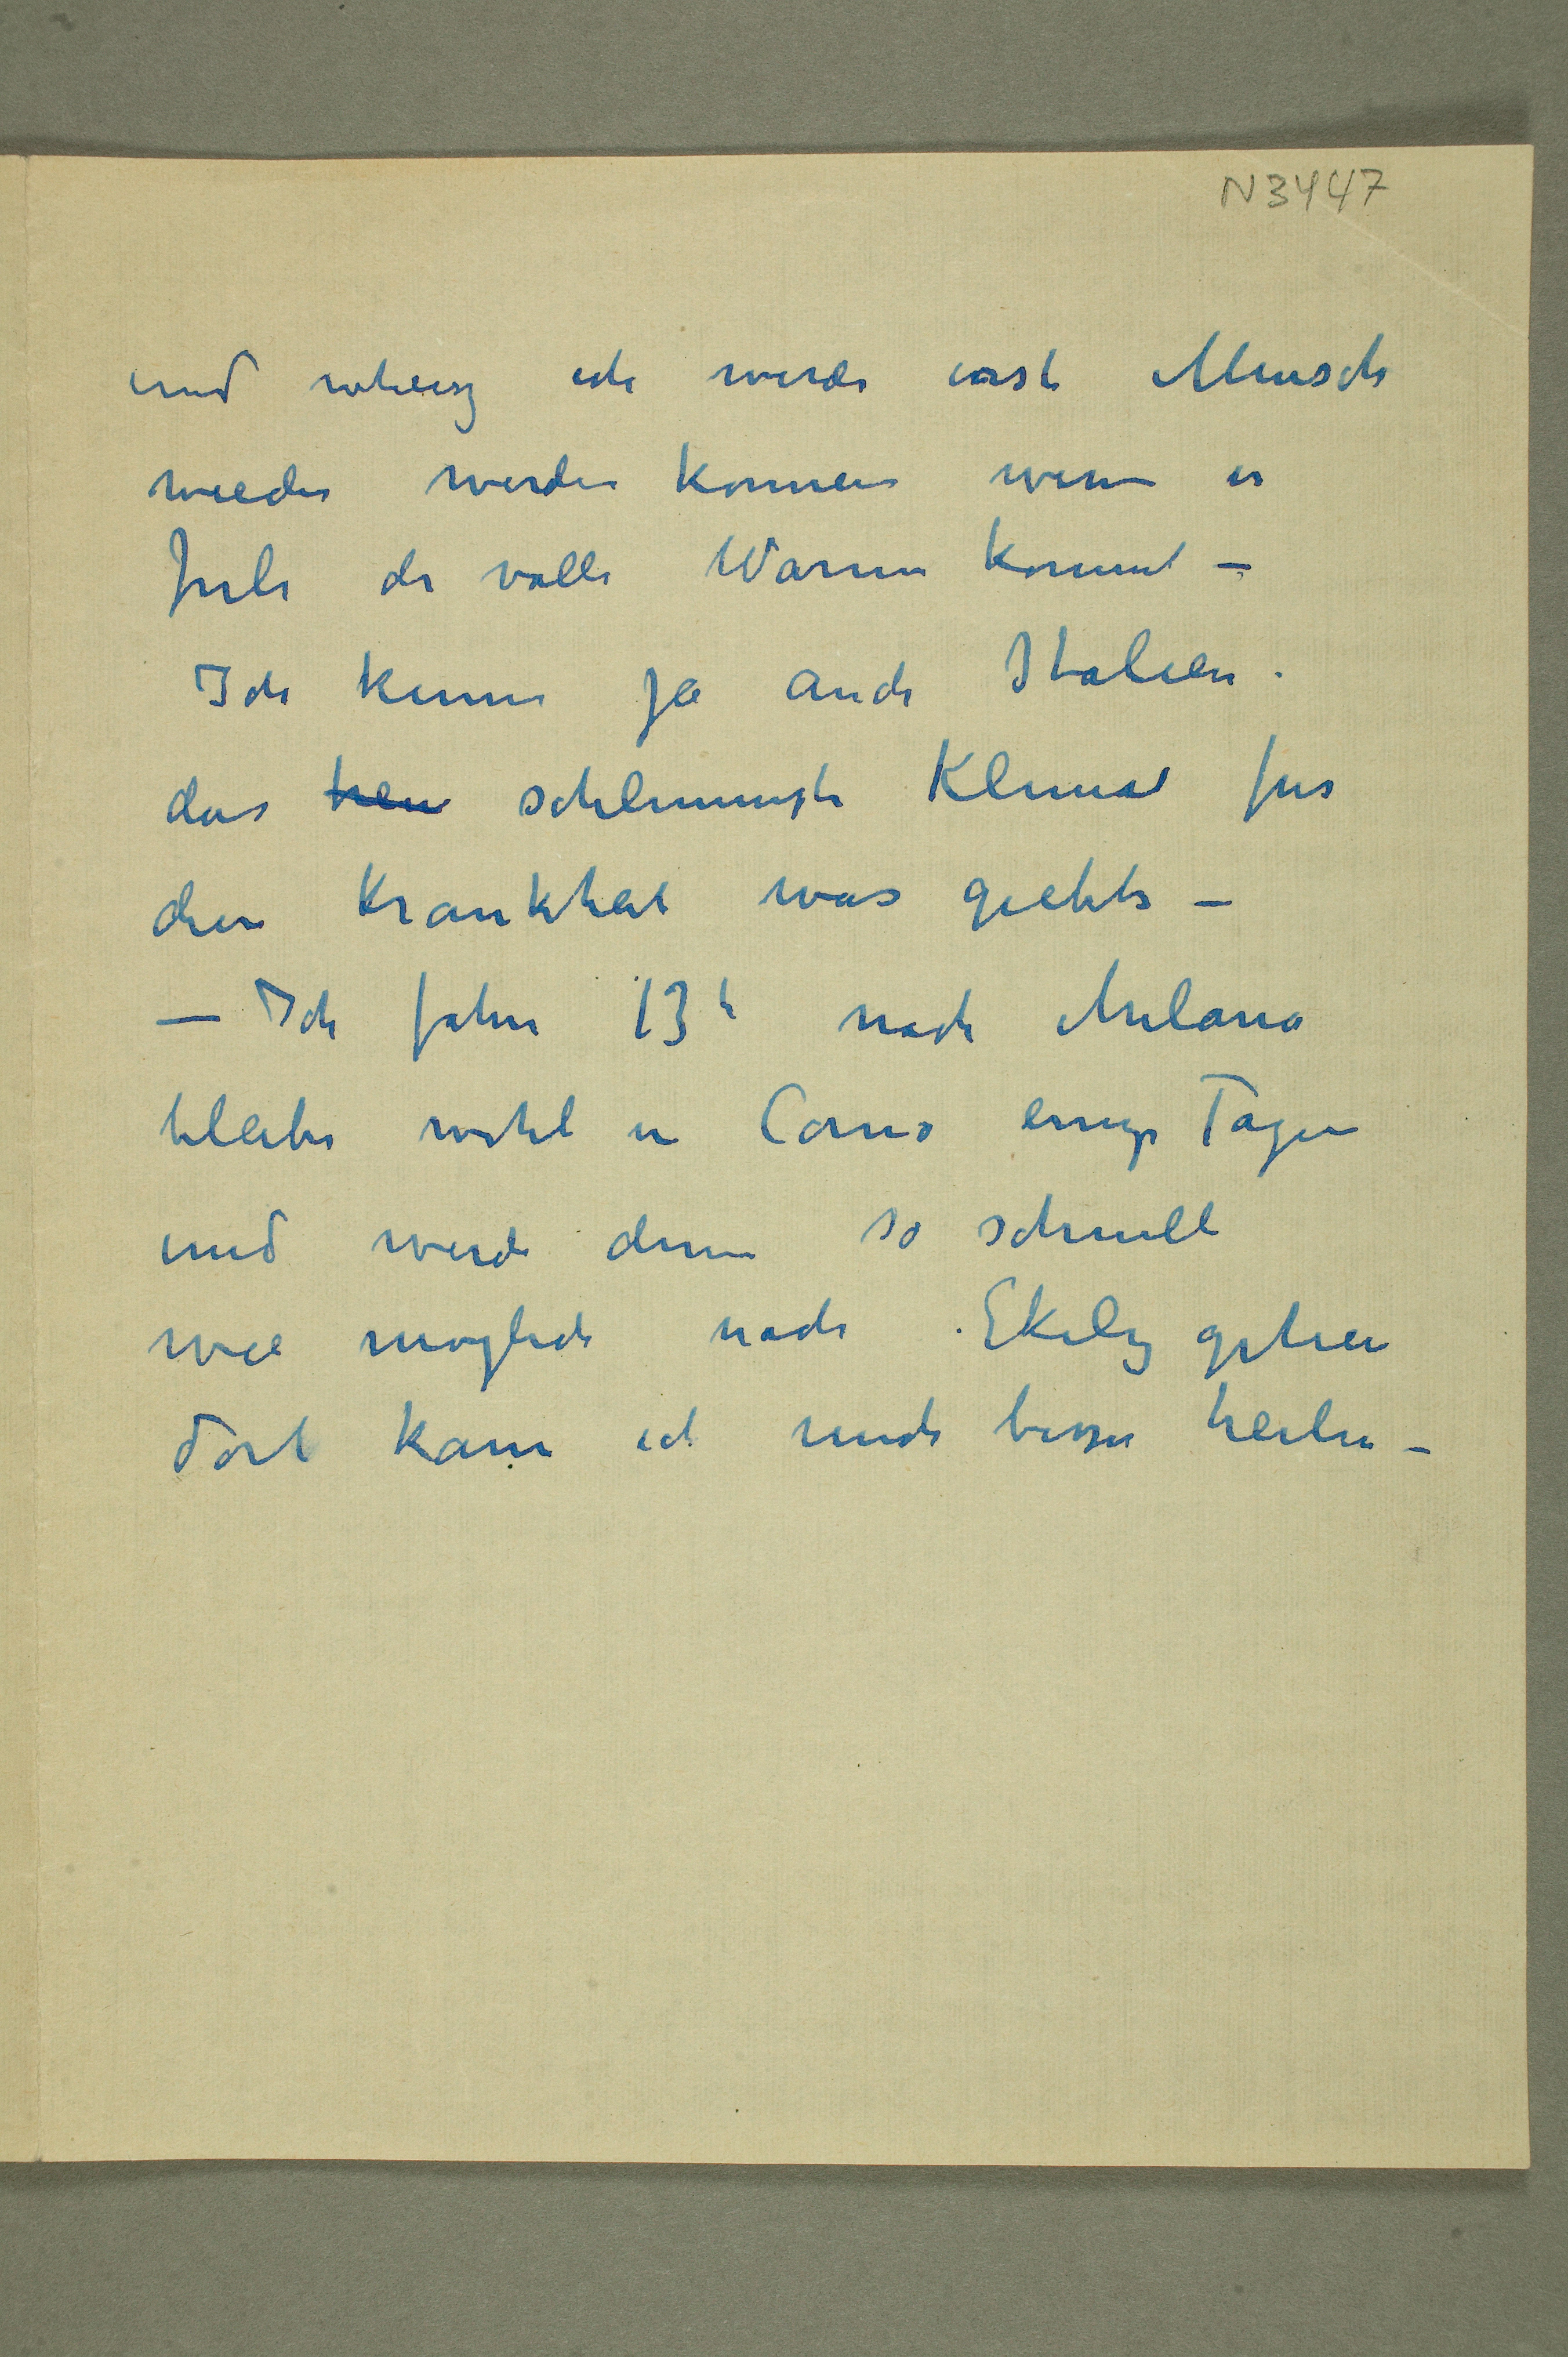 N 3447
und ich werde erst Mensch
wieder werden konnen wenn in
Juli die volle Warme kommt –
Ich kenne ja auch Italien.
das schlimmste Klimat fur
die Krankheit was giebts –
– Ich fahre 13h nach Milano
bleibe wohl in Como einige Tagen
und werde denn so schnell
wie moglich nach Ekely gehen
dort kann ich mich besser heilen –